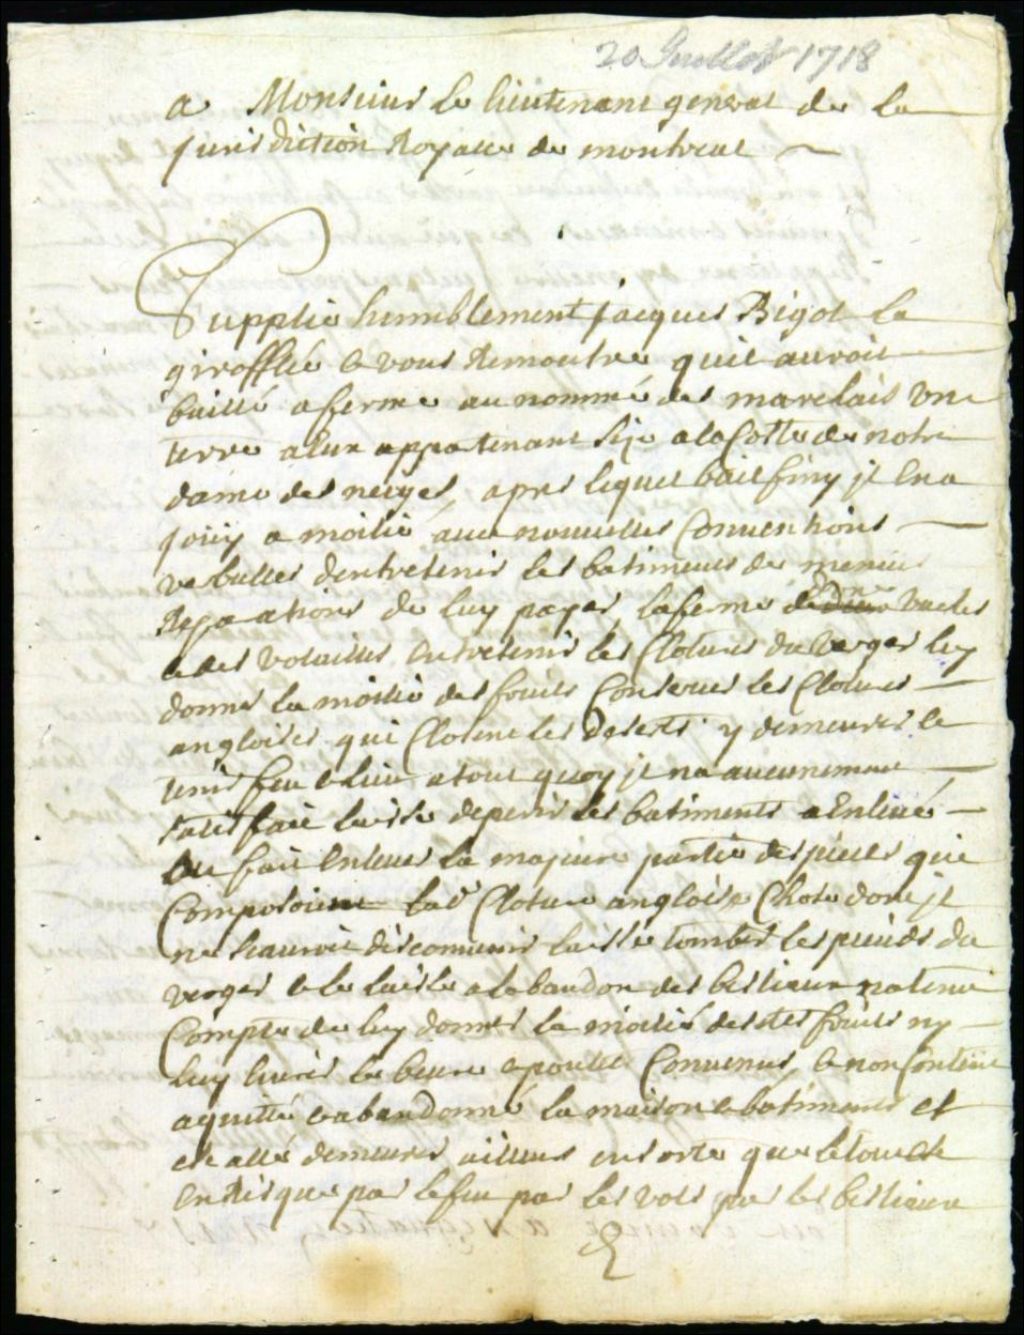 20 Juillet 1718
a Monsieur le lieutenant general de la
jurisdiction Royalle de montreal
Supplie humblement jacques Bigot la
girofflée & vous Remontre quil auroit
baillé a ferme au nommé des marchais une
terre a lui appartenant size a la Cotte de notre
dame des neiges, apres lequel bail finy il la
jouy a moitié aux nouvelles Conventions
verballes dentretenir les batiments de menues
Reparations de luy payer la ferme de vaches
& des volailles entretenir les Clotures du verger luy
donner la moitié des fruits Conserver les Clotures
angloises qui Cloturent les deserts y demeurer &
tenir feu & lieu a tout quoy il na aucunement
satisfait laissé deperir les batiments a Enlevé
ou fait Enlever la majeure partie des pieces qui
Composoient lad. Cloture angloise Chose dont il
ne scauroit disconvenir laissé tomber les pieuds du
verger & le laisse a labandon des bestiaux na tenu
Compte de luy donner la moitié desdits fruits ny
luy livrer le beure & poulles Convenus, & non Content
a quitté & abandonné la maison & batiments et
est allé demeurer ailleurs en sorte que le tout est
en Risque par le feu par les vols par les bestiaux